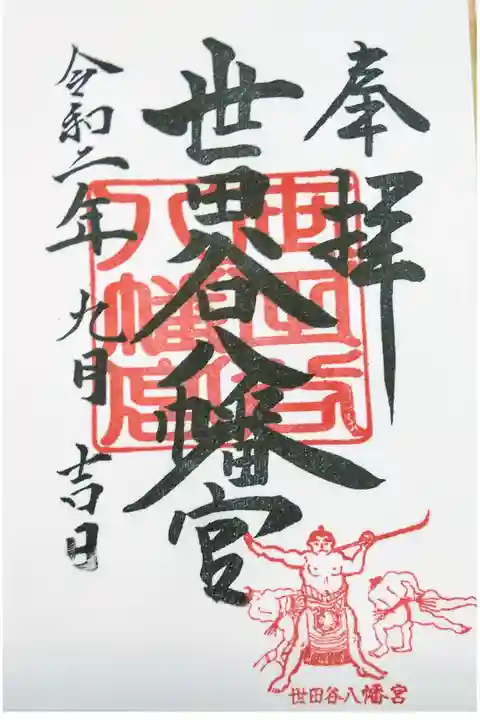 奉拝
世田谷八幡宮
世田谷八幡宮
令和二年 九月 吉日
世田谷八幡宮